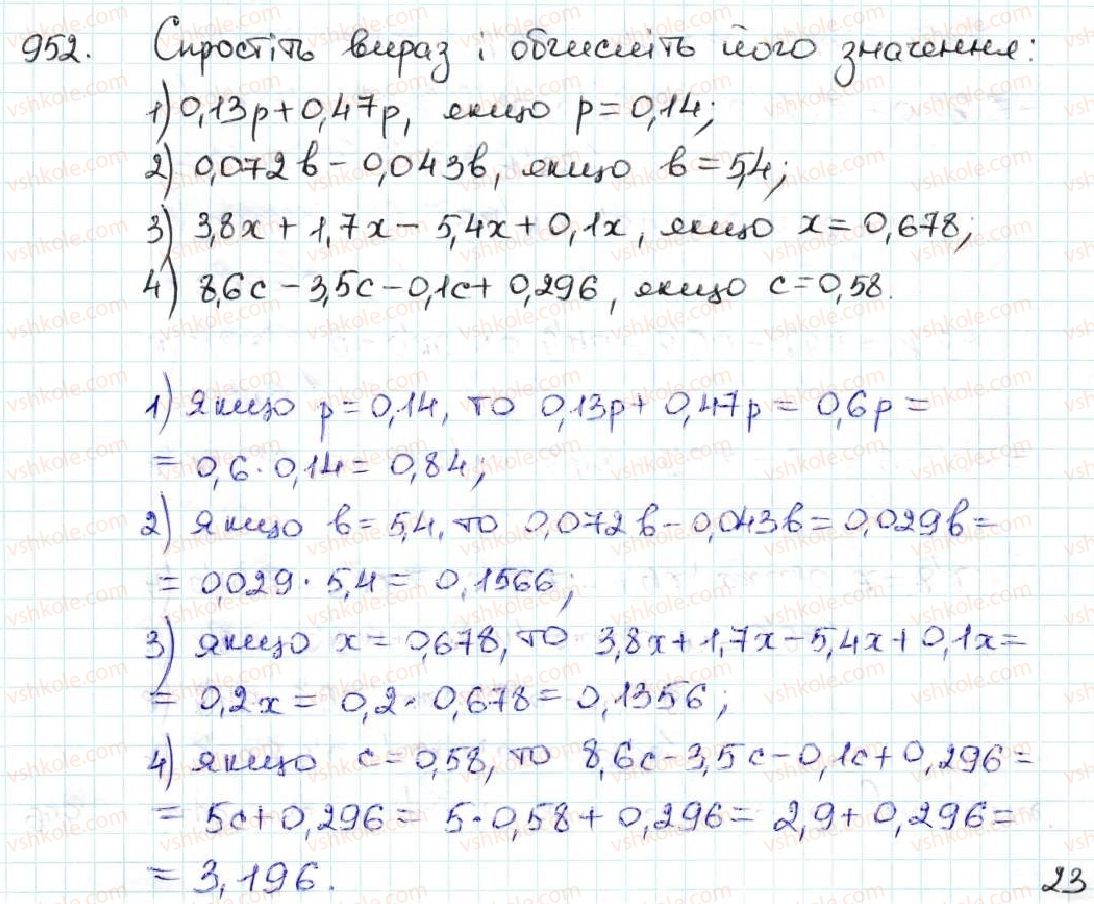 952. Спростіть вираз і обчисліть його значення:
1) 0,13p+0,47p, якщо p=0,14;
2) 0,072b-0,043b, якщо b=5,4;
3) 3,8x+1,7x-5,4x+0,1x, якщо x=0,678;
4) 8,6c-3,5c-0,1c+0,296, якщо c=0,58.
1) Якщо p=0,14, то 0,13p+0,47p=0,6p=
=0,6·0,14=0,84;
2) Якщо b=5,4, то 0,072b-0,043b=0,029b=
=0,029·5,4=0,1566;
3) якщо x=0,678, то 3,8x+1,7x-5,4x+0,1x=
=0,2x=0,2·0,678=0,1356;
4) якщо c=0,58, то 8,6c-3,5c-0,1c+0,296=
=5c+0,296=5·0,58+0,296=2,9+0,296=
=3,196.
23